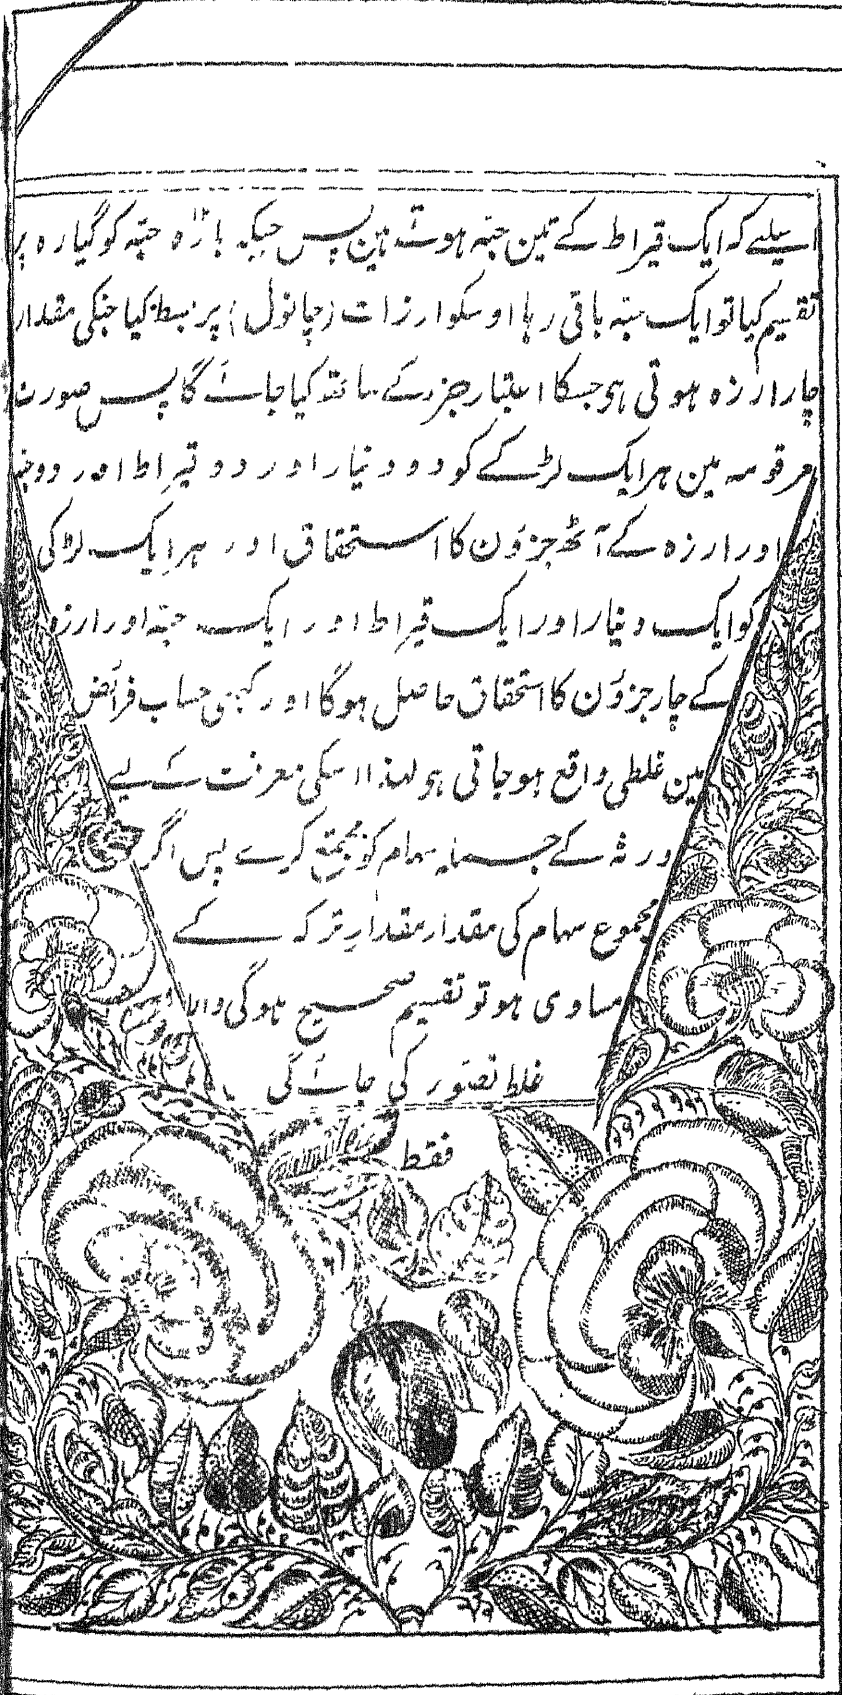 اسلیے کہ ایک قیراط کے تین حبّہ ہوتے ہین پس جبکہ بارہ حبّہ کو گیارہ پر
تقسیم کیا تو ایک حبّہ باقی رہا اوسکو ارزات (چانول) پر بسط کیا جنکی مقدار
چار ارزہ ہوتی ہو جسکا اعتبار جزء کے ساتھ کیا جائے گا پس صورت
مرقومہ مین ہر ایک لڑکے کو دو دنیار اور دو قیراط اور دو حبّہ
اور ارزہ کے آٹھ جزوَن کا استحقاق اور ہر ایک لڑکی
کو ایک دنیار اور ایک قیراط اور ایک حبّہ اور ارزہ
کے چار جزوَن کا استحقاق حاصل ہوگا اور کبھی حساب فرائض
مین غلطی واقع ہو جاتی ہو لہذا اسکی معرفت کے لیے
ورثہ کے جملہ سہام کو مجتمع کرے پس اگر
مجموع سہام کی مقدار مقدارِ ترکہ کے
مساوی ہو تو تقسیم صحیح ہوگی والا
غلط تصور کی جائے گی
فقط